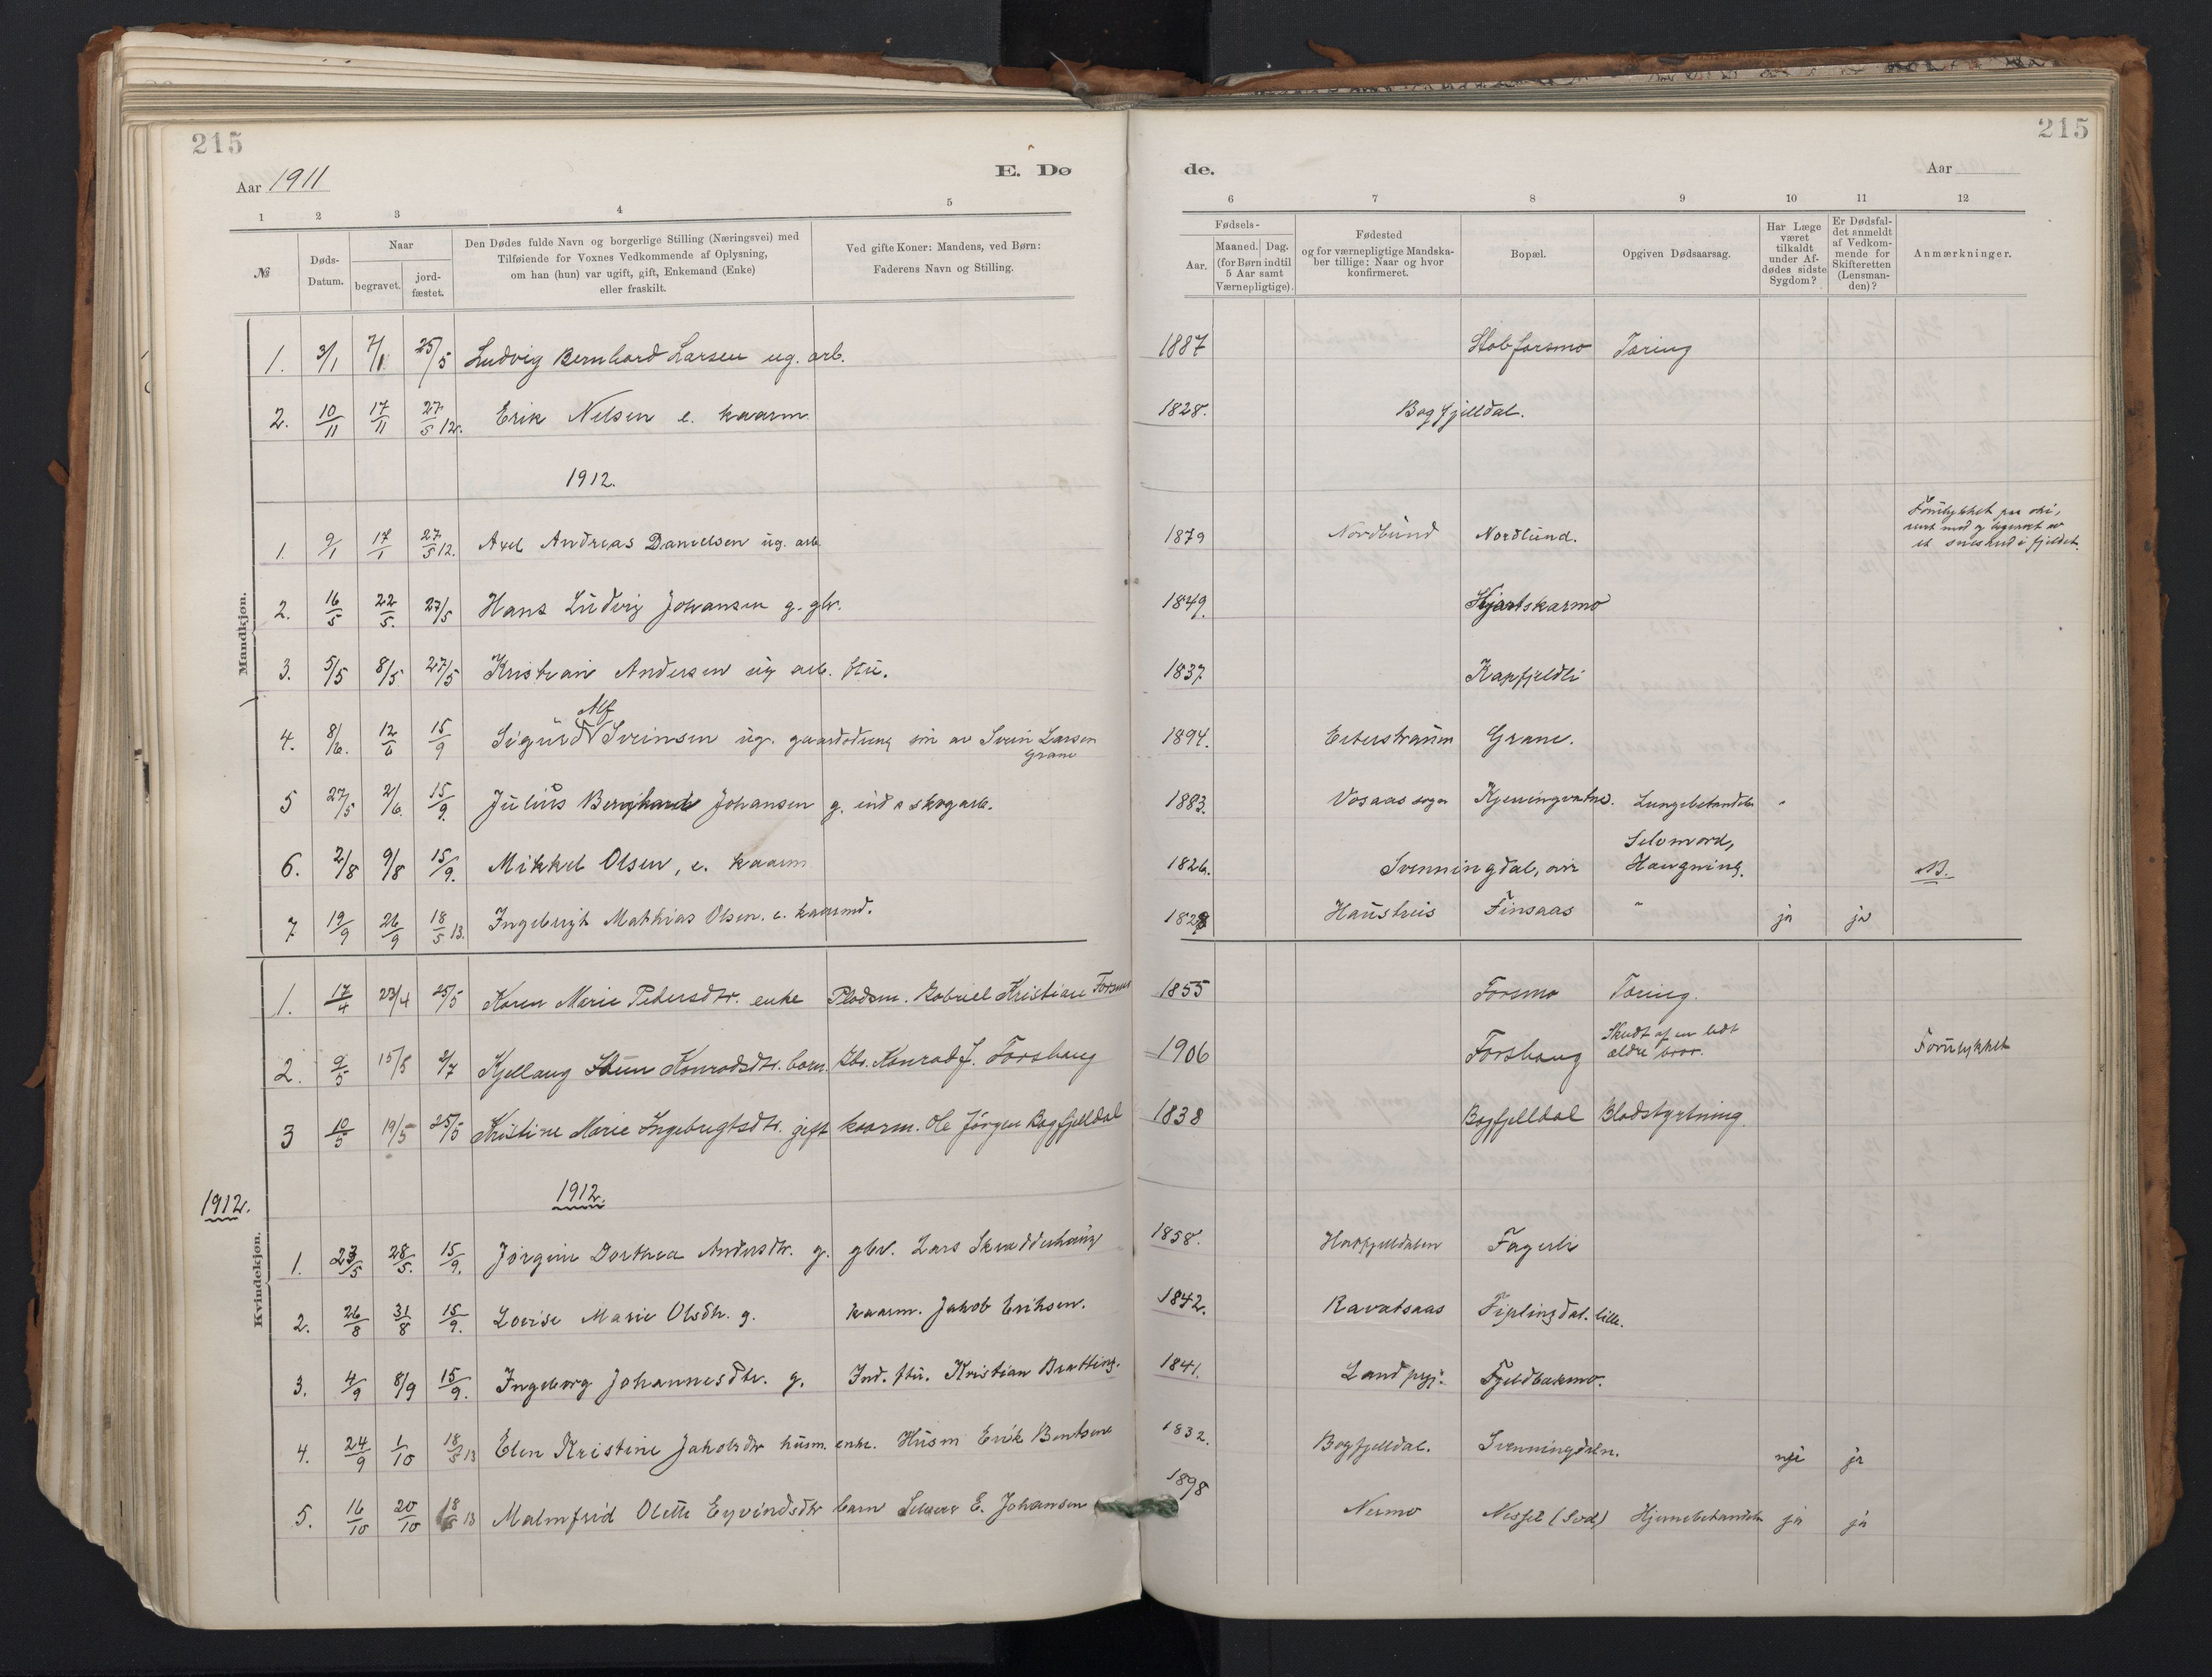 215
215
Aar 1911
E. Dø
de.
Aar
1 2 3 4 5 6 7 8 9 10 11 12
№
Døds-
Datum.
Naar
begravet.
jord-
fæstet.
Den Dødes fulde Navn og borgerlige Stilling (Næringsvei) med
Tilføiende for Voxnes Vedkommende af Oplysning,
om han (hun) var ugift, gift, Enkemand (Enke)
eller fraskilt.
Ved gifte Koner: Mandens, ved Børn:
Faderens Navn og Stilling.
Fødsels-
Aar.
Maaned. Dag.
(for Børn indtil
5 Aar samt
Værnepligtige).
Fødested
og for værnepligtige Mandska-
ber tillige: Naar og hvor
konfirmeret.
Bopæl.
Opgiven Dødsaarsag.
Har Læge
været
tilkaldt
under Af-
dødes sidste
Sygdom?
Er Dødsfal-
det anmeldt
af Vedkom-
mende for
Skifteretten
(Lensman-
den)?
Anmærkninger.
Mandkjøn.
1. 3/1 7/1 25/5 Ludvig Bernhard Larsen ug. arb. 1887 Stabforsmo Tæring
2. 10/11 17/11 27/5 12. Erik Nelsen e. kaarm. 1828. Bagfjelldal.
1912.
1. 9/1 17/1 27/5 12. Axel Andreas Danielsen ug. arb. 1879 Nordlund Nordlund. Forulykket paa ski,
et i fjeldet.
2. 16/5 22/5. 27/5 Hans Ludvig Johansen g. gbr. 1849. Kjartskarmo
3. 5/5 8/5 27/5 Kristian Andersen ug arb. ftu. 1837 Kapfjeldli
Alf
4. 8/6. 12/6 15/9 Sigurd Sveinsen ug. søn av Svein Larsen 1894. Eiterstraum Grane.
Grane
5 27/5 2/6. 15/9. Julius Bernhard Johansen g. ind o skogarb. 1883. Vosaas sogn Kjerringvatne. Lungebetændelse "
Selvmord,
6. 2/8 9/8 15/9. Mikkel Olsen, e. kaarm 1826. Svenningdal, Hængning. NB.
7 19/9 26/9 18/5 13. Ingebrigt Mathias Olsen. e. kaarmd. 1828 Haustreis Finsaas " ja ja
Kvindekjøn.
1. 17/4 23/4 25/5 Karen Marie Pedersdtr. enke Pladsm. Gabriel Kristian Forsmo 1855 Forsmo Tæring.
Skudt af en lidt
2. 9/5 15/5 2/7 Kjellaug Konradsdtr. barn. Gbr. Konrad J. Forshaug 1906 Forshaug ældre bror. Forulykket
3 10/5 19/5 25/5 Kristine Marie Ingebrigtsdtr. gift kaarm. Ole Jørgen Bagfjelldal 1838 Bagfjelldal Blodstyrtning.
1912.
1912.
1. 23/5 28/5. 15/9. Jørgine Dorthea Andersdtr. g. gbr. Lars Skrædderhaug 1858. Hatfjelldalen Fagerli
2. 26/8 31/8 15/9. Lovise Marie Olsdtr. g. kaarm. Jakob Eriksen. 1842. Kavatsaas Fiplingdal. lille.
3. 4/9 8/9 15/9. Ingeborg Johannesdtr. g. Ind. ftu. Kristian Bratting. 1841. Fjeldbakmo.
4. 24/9 1/10 18/5 13 Elen Kristine Jakobsdtr husm. enke. Husm Erik Bentsen 1832. Bagfjelldal. Svenningdaln. nei ja
5. 16/10 20/10 18/5 13 Malmfrid Olette Eyvindsdtr barn E. Johansen 1898 Nermo Hjernebetændelse ja ja